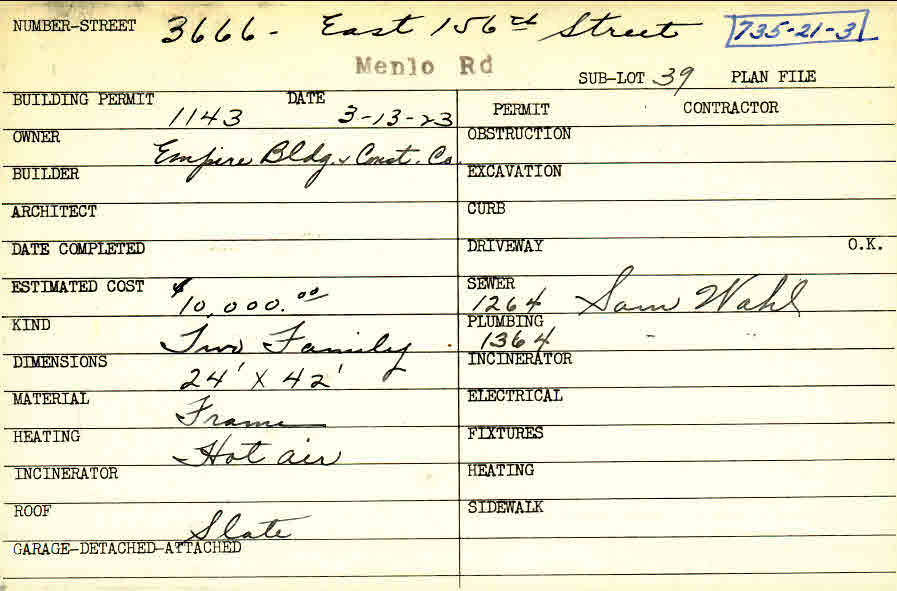 NUMBER-STREET 3666 - East 156th Street 735-21-3
Menlo Rd
SUB-LOT 39 PLAN FILE
BUILDING PERMIT 1143 DATE 3-13-23
PERMIT CONTRACTOR
OWNER Empire Bldg & Const. Co.
OBSTRUCTION
BUILDER
EXCAVATION
ARCHITECT
CURB
DATE COMPLETED
DRIVEWAY O.K.
ESTIMATED COST $10,000.00
SEWER 1264 Sam Wahl
KIND Two Family
PLUMBING 1364 - "
DIMENSIONS 24' X 42'
INCINERATOR
MATERIAL Frame
ELECTRICAL
HEATING Hot air
FIXTURES
INCINERATOR
HEATING
ROOF Slate
SIDEWALK
GARAGE-DETACHED-ATTACHED